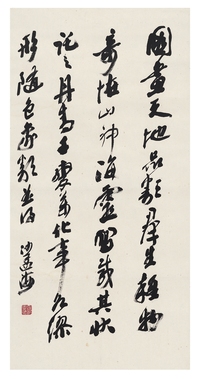 圖畫天地品類群生雜物
奇怪山神海靈寫載其狀
託之丹青千變萬化事各繆
形隨色象類曲得
沙孟海